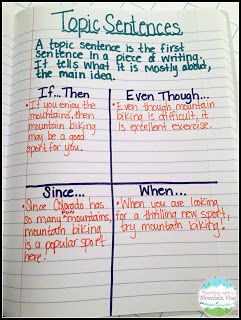 Topic Sentences
A topic sentence is the first
sentence in a piece of writing.
It tells what it is mostly about,
the main idea.
If...Then
• If you enjoy the
mountains, then
mountain biking
may be a good
sport for you.
Even Though...
• Even though mountain
biking is difficult, it
is excellent exercise.
Since...
• Since Colorado has
so many fun mountains,
mountain biking
is a popular sport
here!
When...
• When you are looking
for a thrilling new sport,
try mountain biking!
Teaching with a
Mountain View